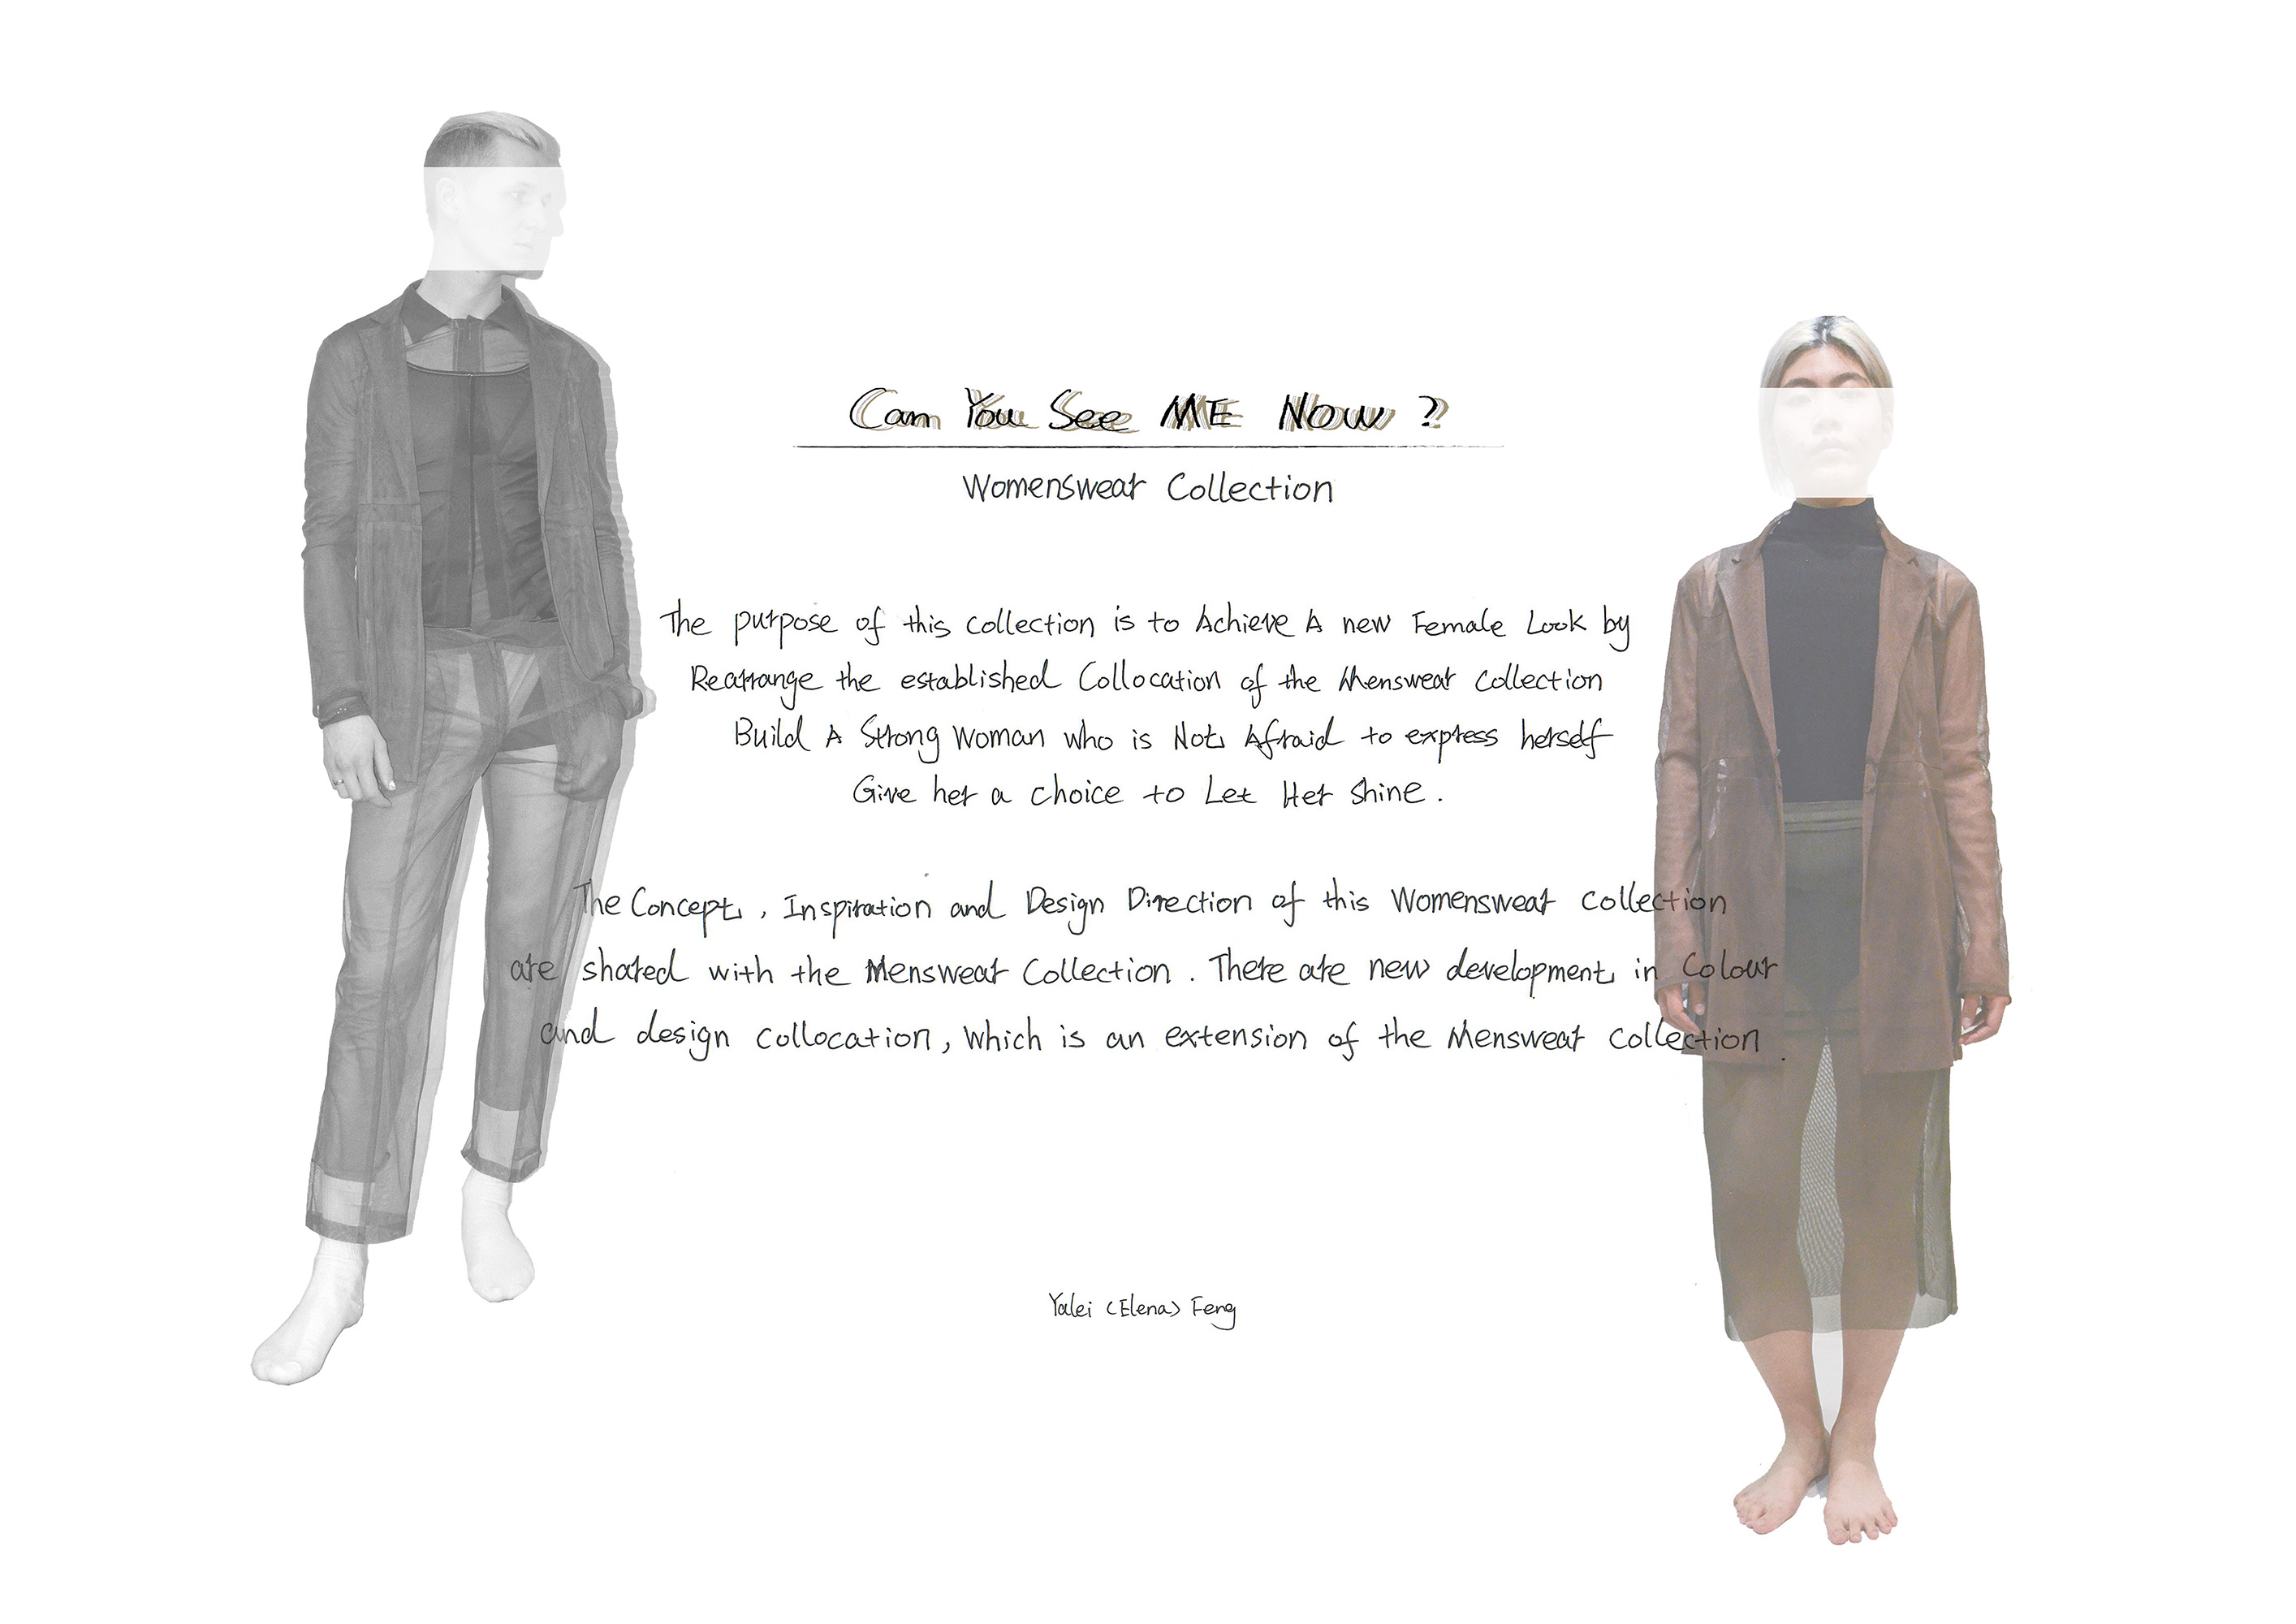 Can You See ME Now ?
Womenswear Collection
The purpose of this collection is to Achieve A new Female Look by
Rearrange the established Collocation of the Menswear Collection
Build A Strong Woman who is Not Afraid to express herself
Give her a choice to Let Her shine .
The Concept , Inspiration and Design Direction of this Womenswear Collection
are shared with the Menswear Collection . There are new development in Colour
and design collocation , which is an extension of the Menswear Collection .
Yalei (Elena) Feng